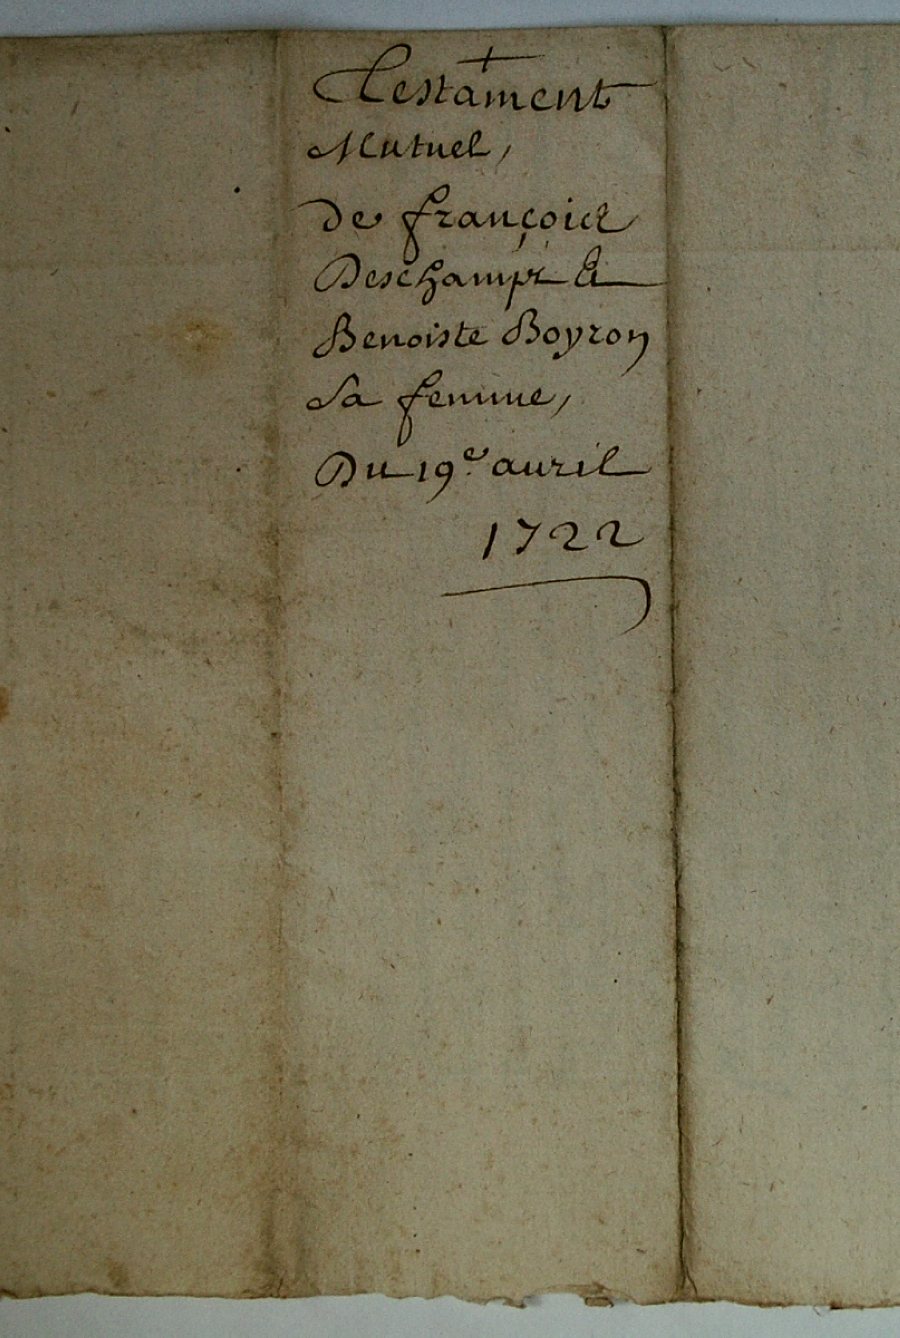 +
Testament
Mutuel,
De françois
Deschamps &
Benoiste Boyron
Sa femme,
Du 19e auril
1722